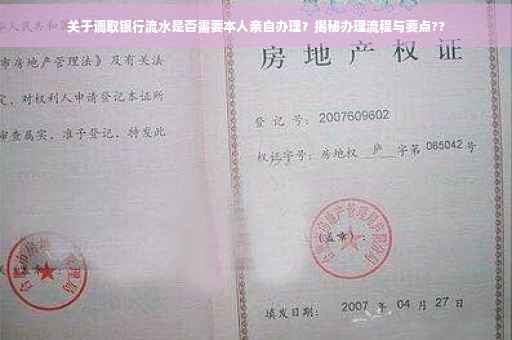 关于调取银行流水是否需要本人亲自办理？揭秘办理流程与要点??
人民共和国
市房地产管理法》及有关法
定，对权利人申请登记本证所
审查属实，准予登记，特发此
房地产权
登记号：2007609602
权证字号：房地权 庐 字第 085042 号
(盖章)：
填发日期： 2007 年 04 月 27 日